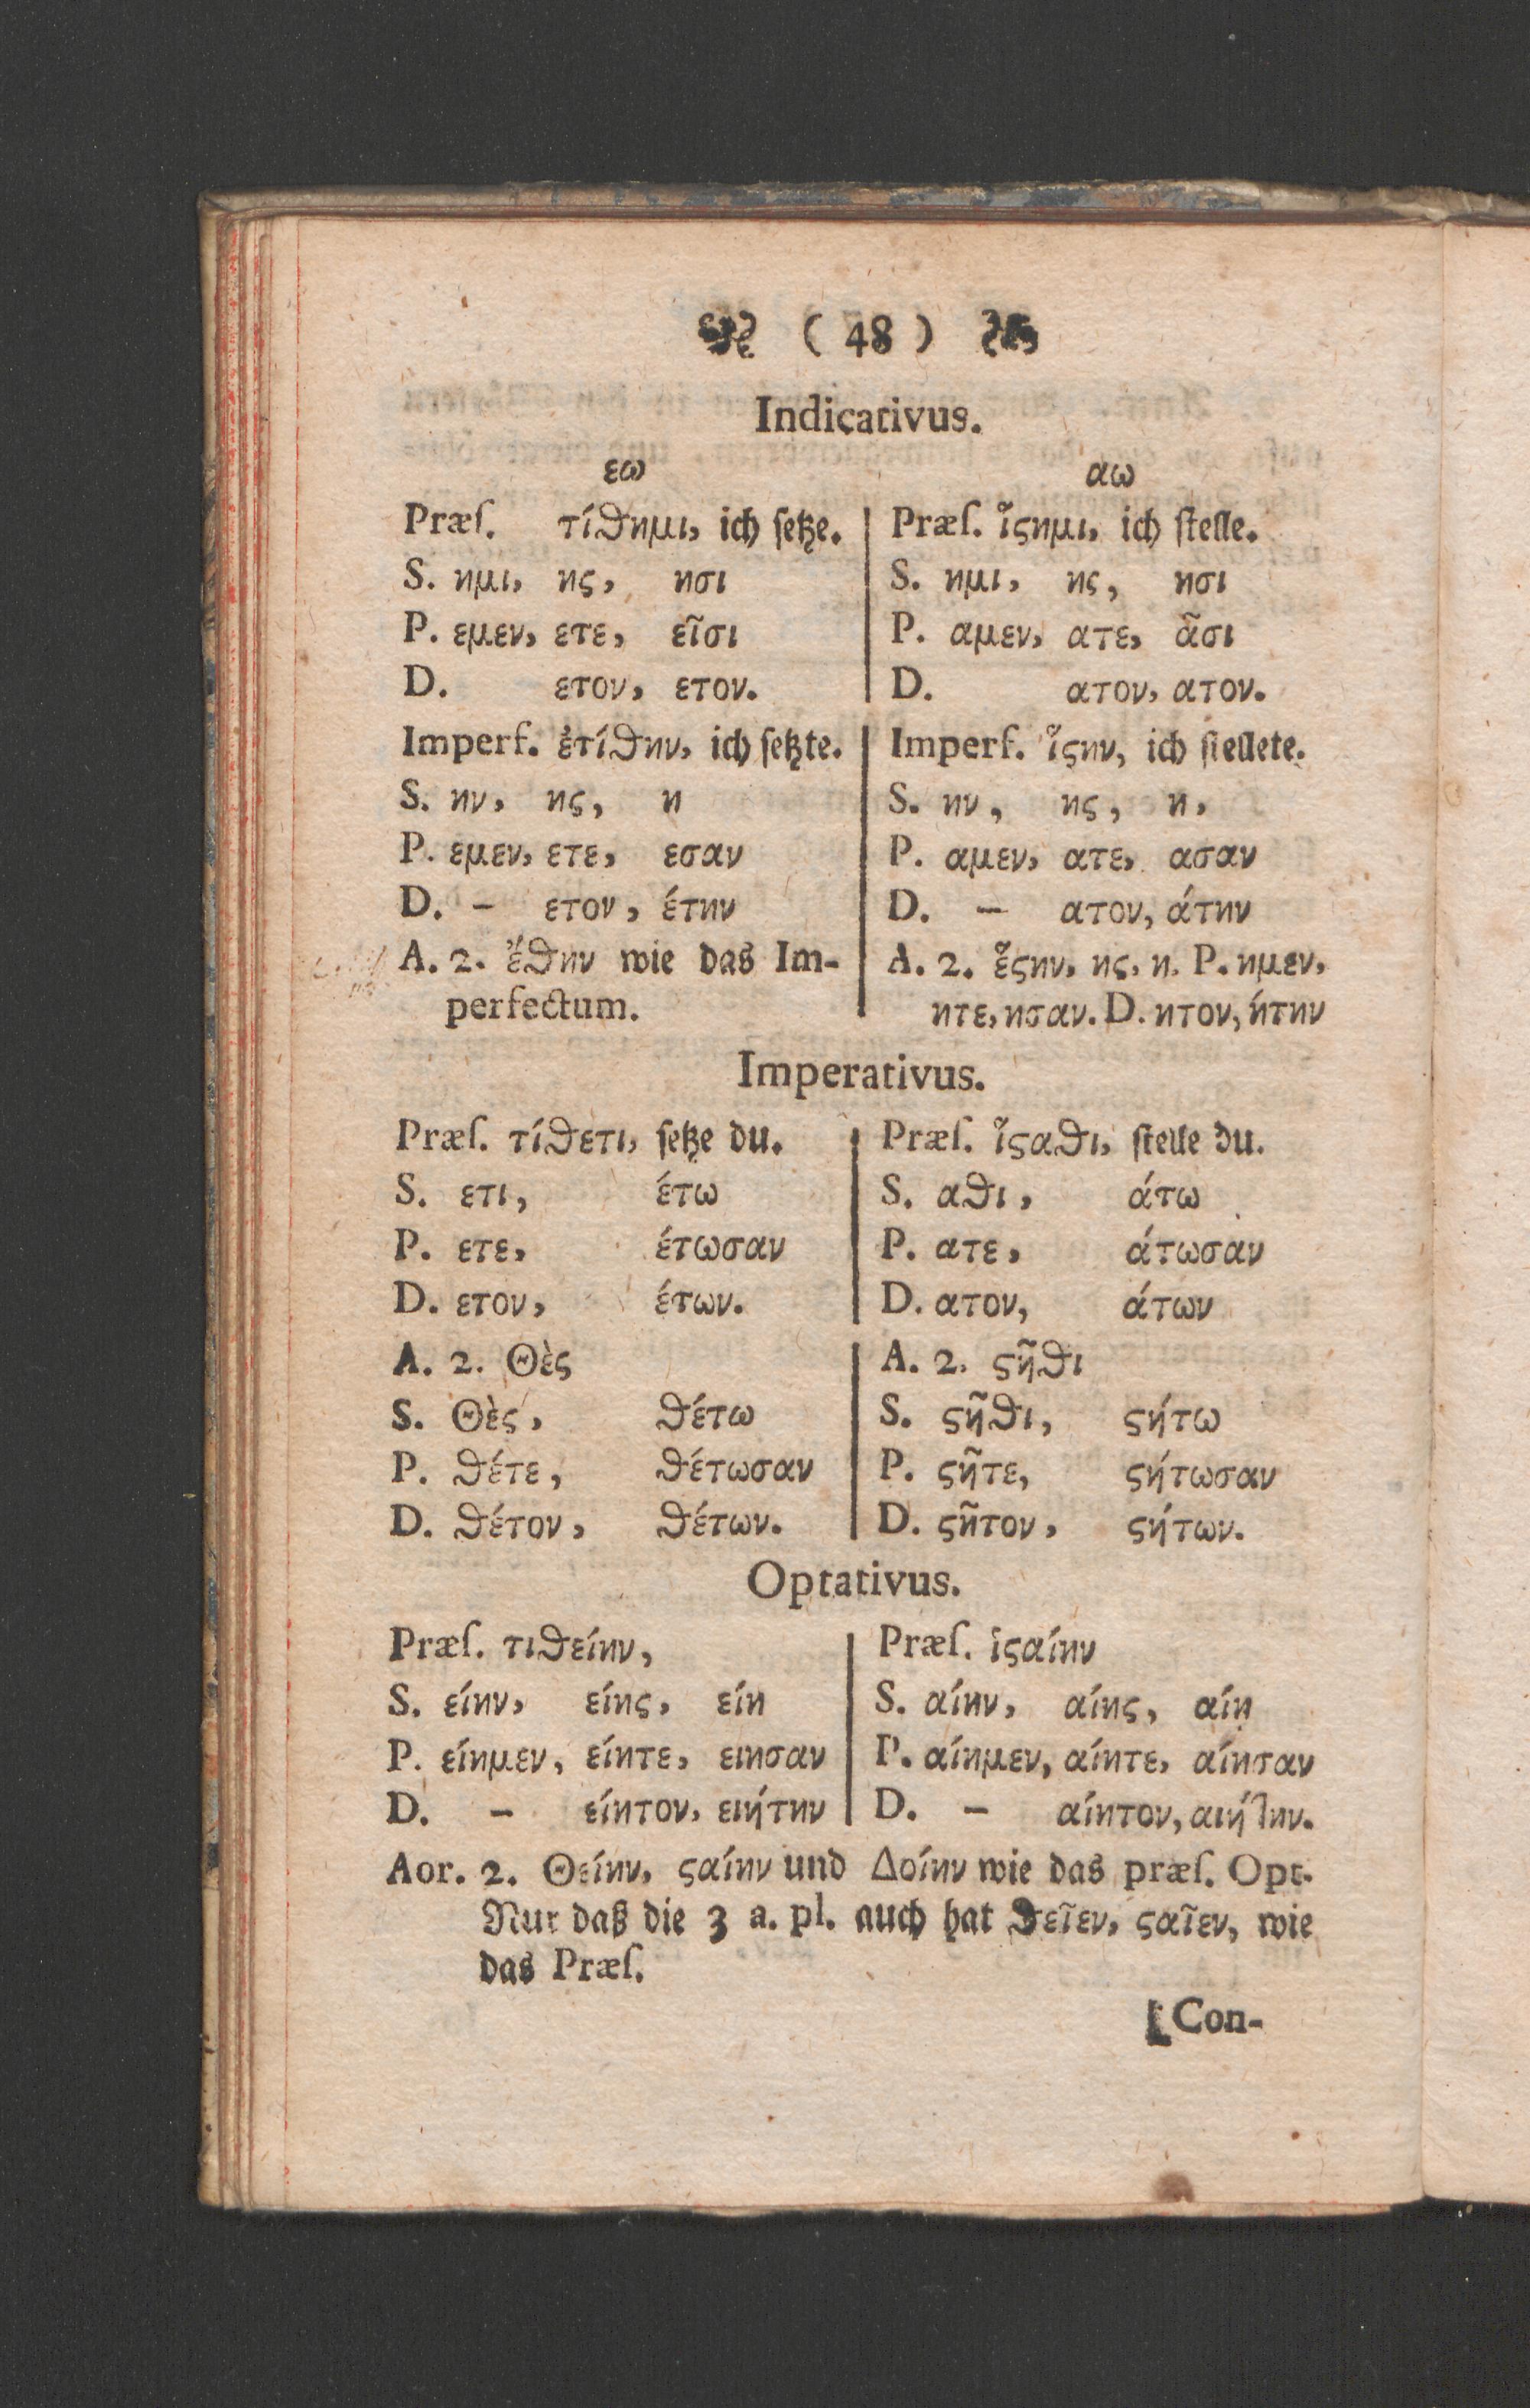 ( 48 )
Indicativus.
εω αω
Præſ. τίϑημι, ich ſetze. Præſ. ἵϛημι, ich ſtelle.
S. ημι, ης, ησι S. ημι, ης, ησι
P. εμεν, ετε, εῖσι P. αμεν, ατε, ᾶσι
D. ετον, ετον. D. ατον, ατον.
Imperf. ἐτίϑην, ich ſetzte. Imperf. ἵϛην, ich ſtellete.
S. ην, ης, η S. ην, ης, η,
P. εμεν, ετε, εσαν P. αμεν, ατε, ασαν
D. – ετον, έτην D. – ατον, άτην
A. 2. ἔϑην wie das Im- A. 2. ἕϛην, ης, η. P. ημεν,
perfectum. ητε, ησαν. D. ητον, ήτην
Imperativus.
Præſ. τίϑετι, ſetze du. Præſ. ἵϛαϑι, ſtelle du.
S. ετι, έτω S. αϑι, άτω
P. ετε, έτωσαν P. ατε, άτωσαν
D. ετον, έτων. D. ατον, άτων
A. 2. Θὲς A. 2. ϛῆϑι
S. Θὲς, ϑέτω S. ϛῆϑι, ϛήτω
P. ϑέτε, ϑέτωσαν P. ϛῆτε, ϛήτωσαν
D. ϑέτον, ϑέτων. D. ϛῆτον, ϛήτων.
Optativus.
Præſ. τιϑείην, Præſ. ἱϛαίην
S. είην, είης, είη S. αίην, αίης, αίη
P. είημεν, είητε, ειησαν P. αίημεν, αίητε, αίησαν
D. – είητον, ειήτην D. – αίητον, αιήτην.
Aor. 2. Θείην, ϛαίην und Δοίην wie das præſ. Opt.
Nur daß die 3 a. pl. auch hat ϑεῖεν, ϛαῖεν, wie
das Præſ.
Con-